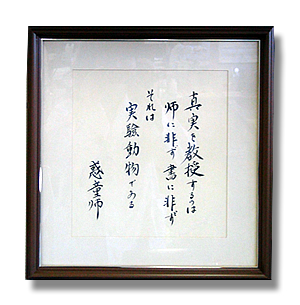 真実を教授するは
師に非ず書に非ず
それは
実験動物である
惑童師